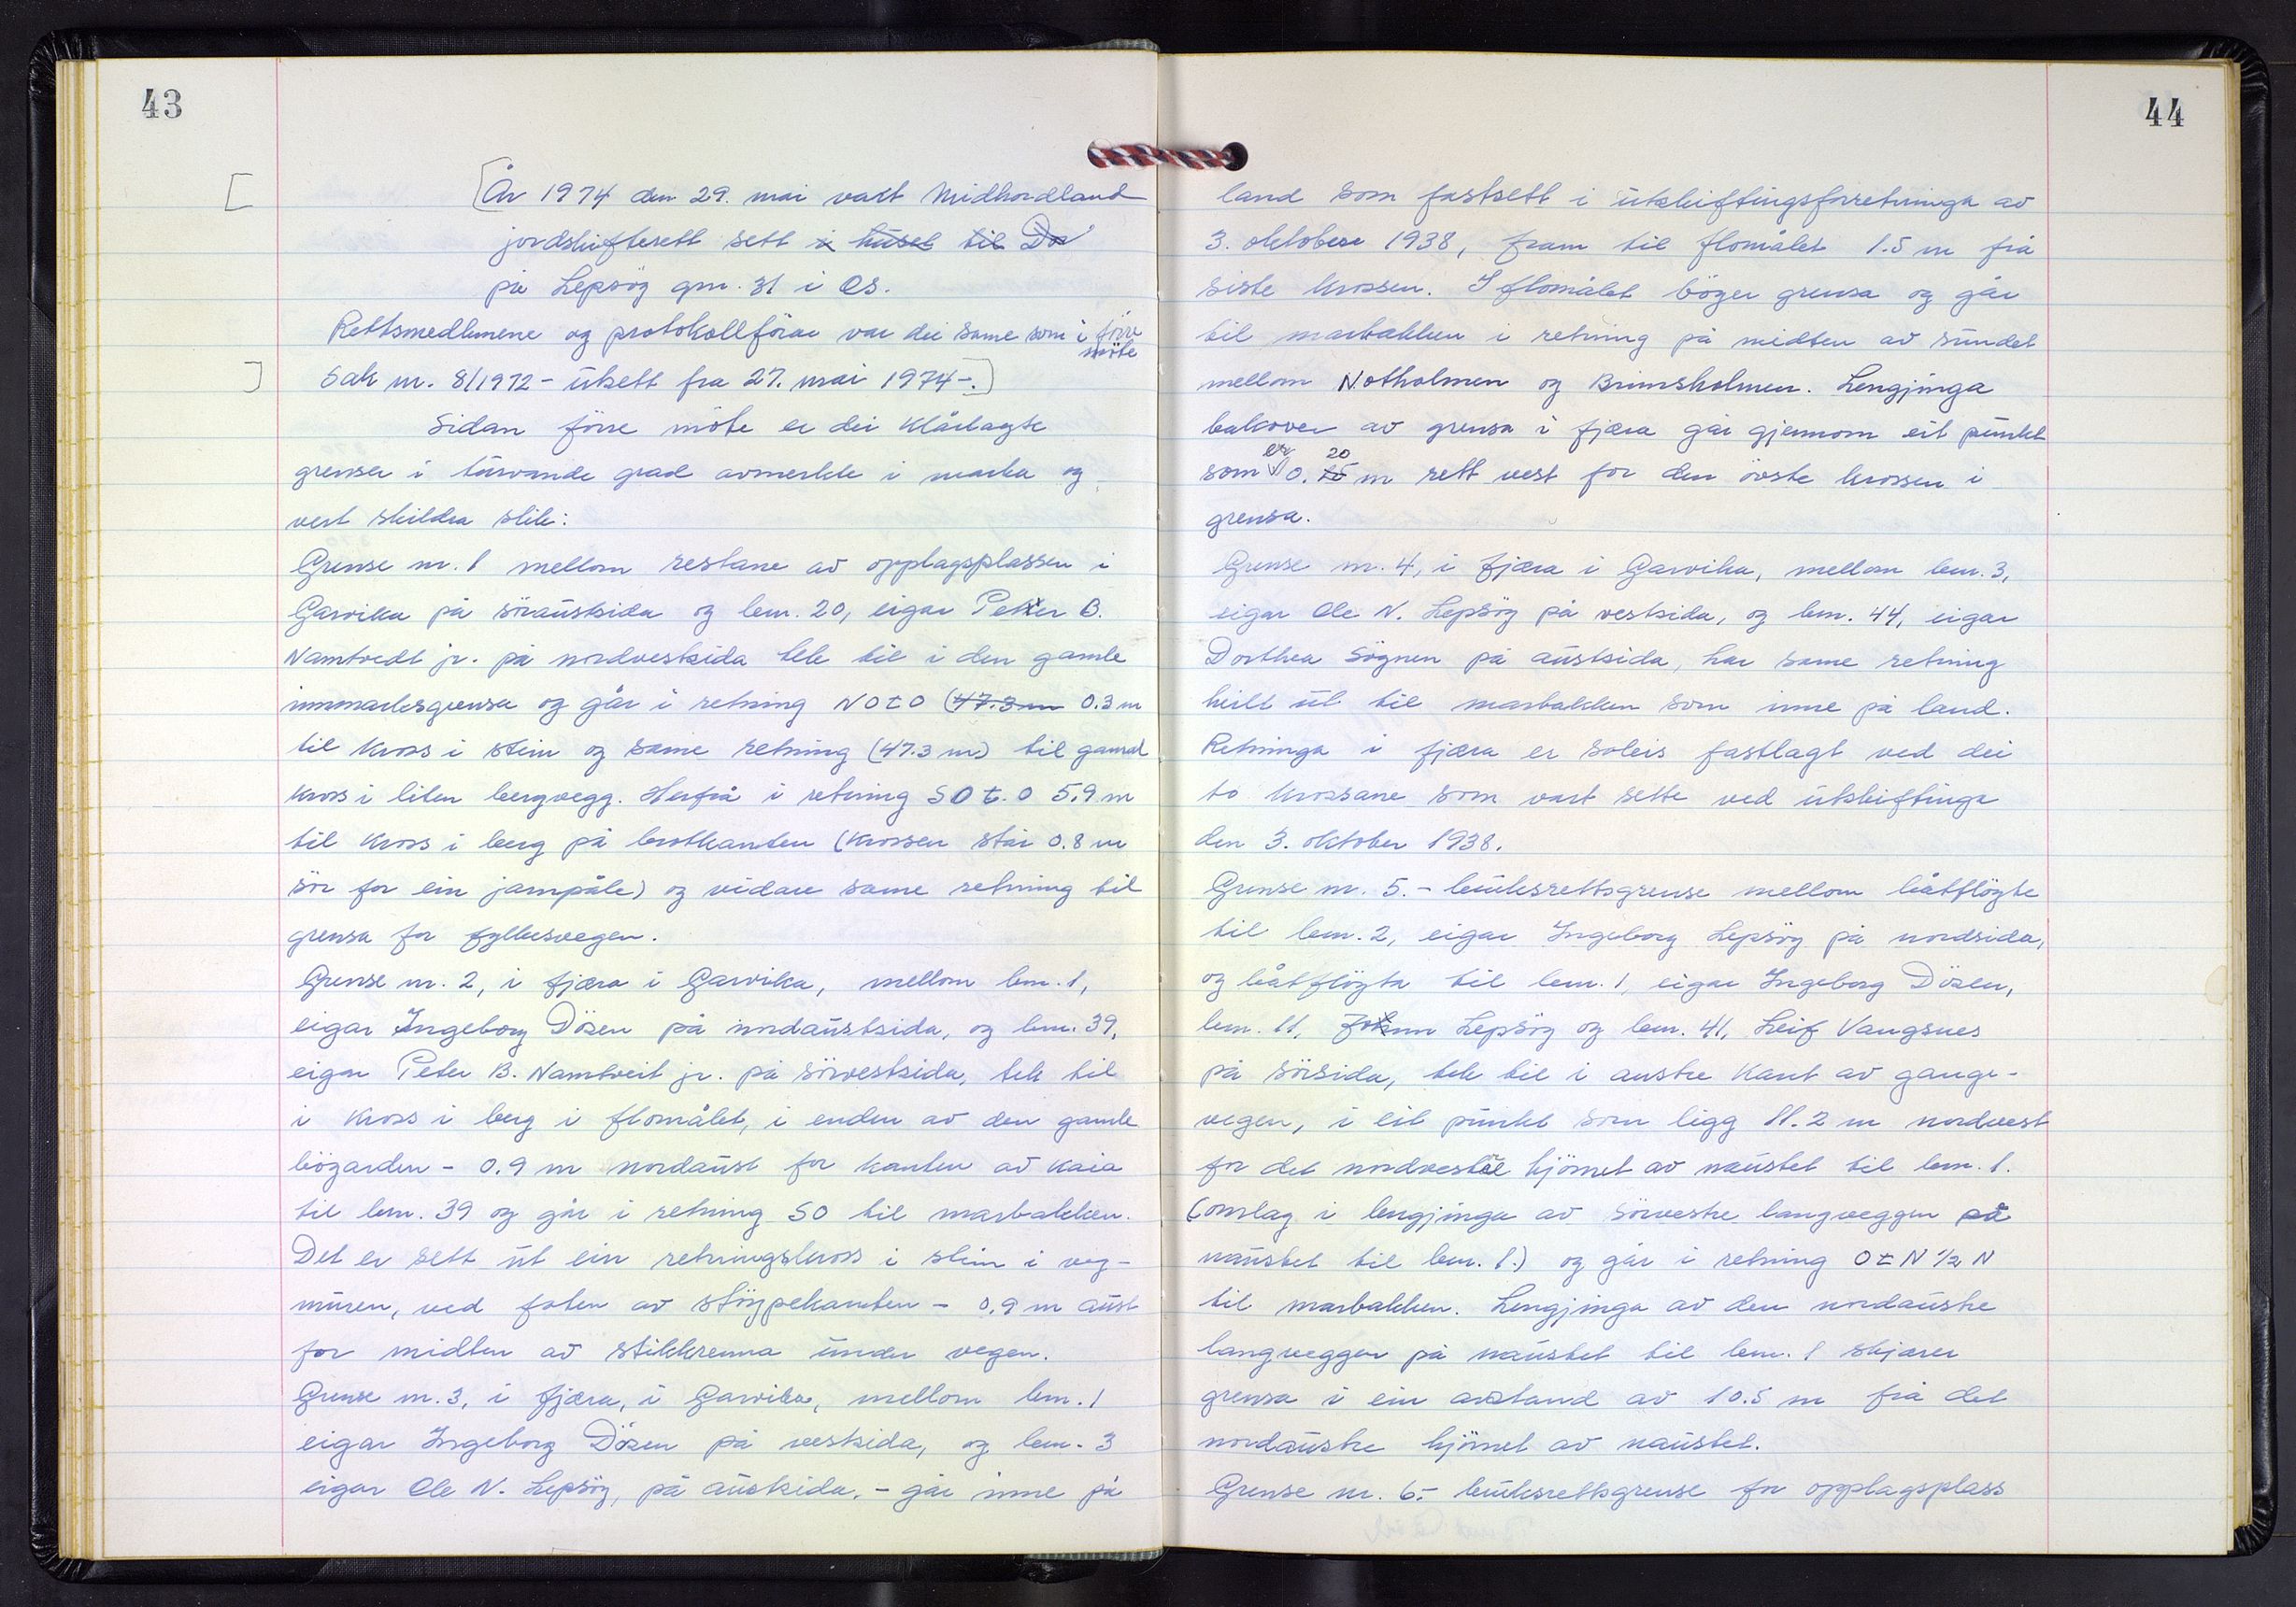 43
År 1974 den 29. mai vart Midhordland
jordskifterett sett i huset til Do
på Lepsøy gnr. 31 i Os.
Rettsmedlemene og protokollförar var dei same som i förre
möte
Sak nr. 8/1972 - utsett fra 27. mai 1974-.
Sidan förre möte er dei klårlagte
grenser i turvande grad avmerkte i marka og
vert skildra slik:
Grense nr. 1 mellom restane av opplagsplassen i
Garvika på söraustsida og bnr. 20, eigar Peter B.
Namtvedt jr. på nordvestsida tek til i den gamle
innmarksgrensa og går i retning NOtO (47.3 m 0.3 m
til kross i stein og same retning (47.3 m) til gamal
kross i liten bergvegg. Herfrå i retning SO t. O 5.9 m
til kross i berg på brotkanten (krossen står 0.8 m
sör for ein jarnpåle) og vidare same retning til
grensa for fylkesvegen.
Grense nr. 2, i fjæra i Garvika, mellom bnr. 1,
eigar Ingeborg Dösen på nordaustsida, og bnr. 39,
eigar Peter B. Namtveit jr. på sörvestsida, tek til
i kross i berg i flomålet, i enden av den gamle
bögarden - 0.9 m nordaust for kanten av kaia
til bnr. 39 og går i retning SO til marbakken.
Det er sett ut ein retningskross i stein i veg-
muren, ved foten av stöypekanten - 0.9 m aust
for midten av stikkrenna under vegen.
Grense nr. 3, i fjæra, i Garvika, mellom bnr. 1
eigar Ingeborg Dösen på vestsida, og bnr. 3
eigar Ole N. Lepsöy, på austsida, - går inne på
44
land som fastsett i utskiftingsforretninga av
3. oktober 1938, fram til flomålet 1.5 m frå
siste krossen. I flomålet böyer grensa og går
til marbakken i retning på midten av sundet
mellom Notholmen og Brimsholmen. Lengjinga
bakover av grensa i fjæra går gjennom eit punkt
er 20
som 0.15 m rett vest for den övste krossen i
grensa.
Grense nr. 4, i fjæra i Garvika, mellom bnr. 3,
eigar Ole N. Lepsöy på vestsida, og bnr. 44, eigar
Dorthea Søgnen på austsida, har same retning
heilt ut til marbakken som inne på land.
Retninga i fjæra er soleis fastlagt ved dei
to krossane som vart sette ved utskiftinga
den 3. oktober 1938.
Grense nr. 5. - bruksrettsgrense mellom båtflöyte
til bnr. 2, eigar Ingeborg Lepsöy på nordsida,
og båtflöyta til bnr. 1, eigar Ingeborg Dösen,
bnr. 11, Johnn Lepsöy og bnr. 41, Leif Vangsnes
på sörsida, tek til i austre kant av gange-
vegen, i eit punkt som ligg 11.2 m nordvest
for det nordvestre hjörnet av naustet til bnr. 1.
(omlag i lengjinga av sörvestre langveggen på
naustet til bnr. 1.) og går i retning OtN 1/2 N
til marbakken. Lengjinga av den nordaustre
langveggen på naustet til bnr. 1 skjærer
grensa i ein avstand av 10.5 m frå det
nordaustre hjörnet av naustet.
Grense nr. 6.- bruksrettsgrense for opplagsplass